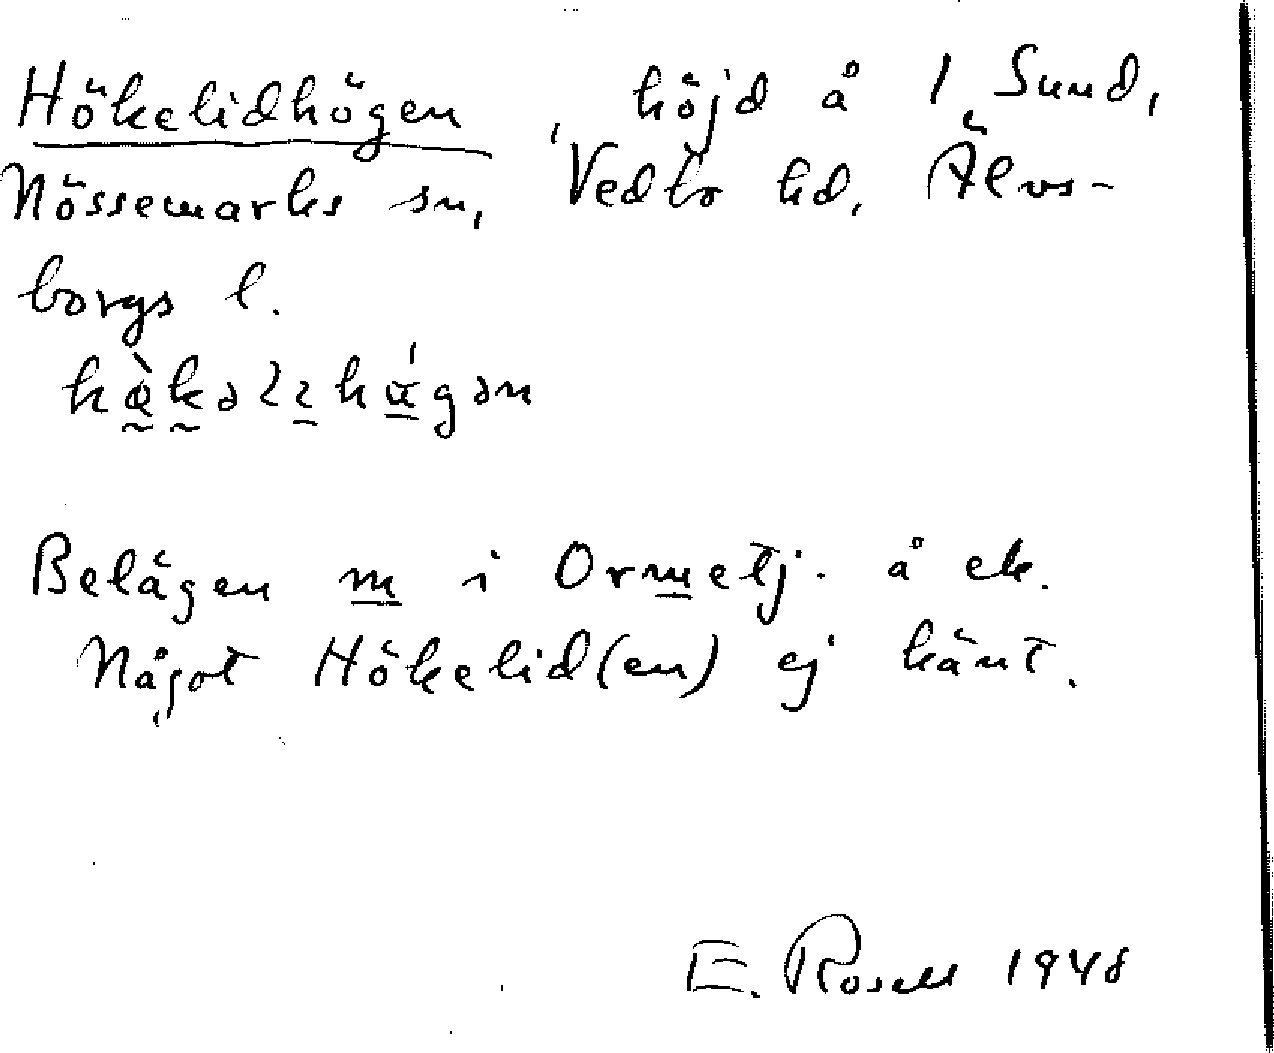 Hökelidhögen, höjd å 1 Sund,
Nössemarks sn, Vedbo hd, Älvs-
borgs l.
Belägen m i Ormetj. å ek.
Något Hökelid(en) ej känt.
E. Rosell 1948